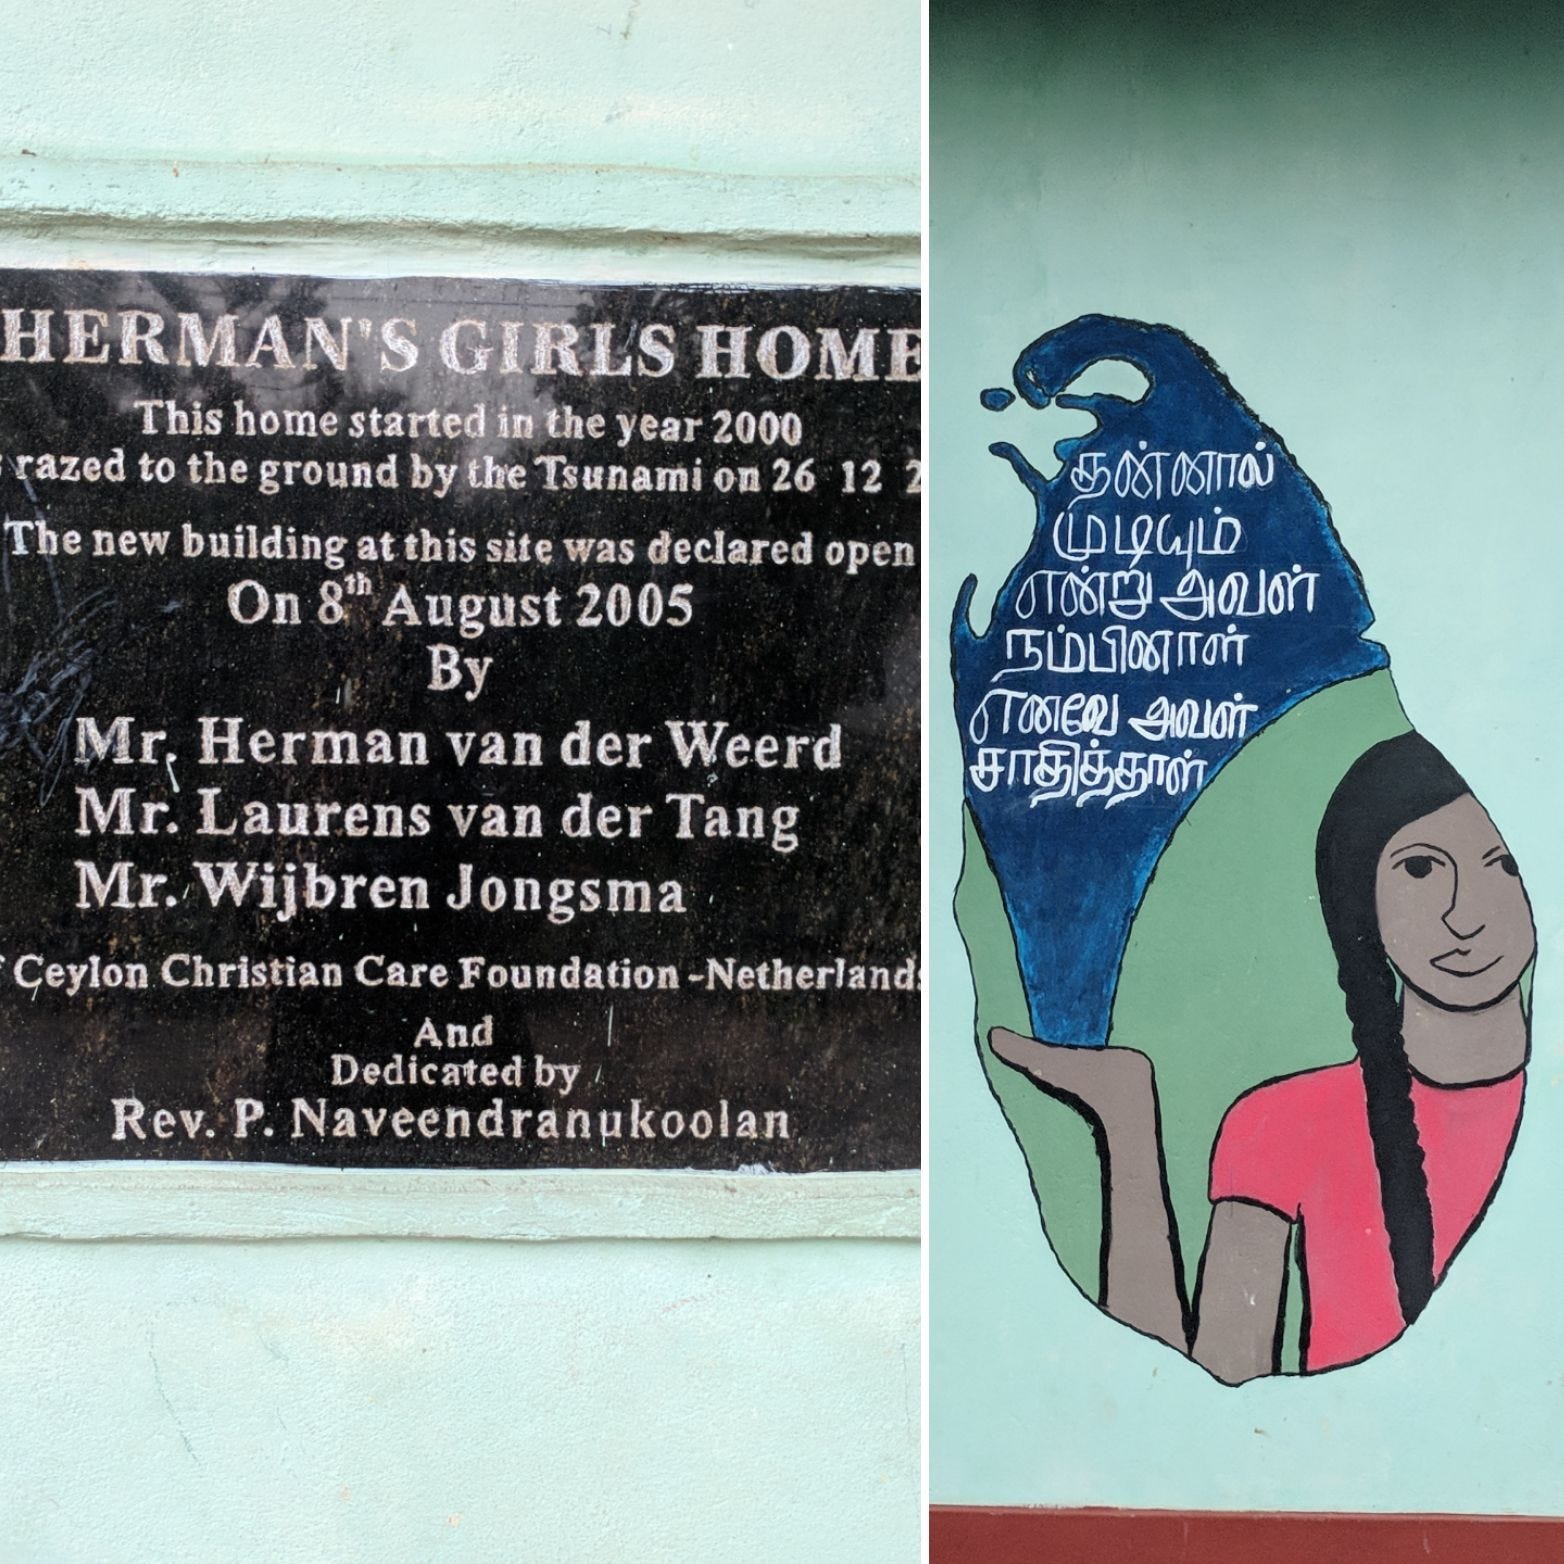 HERMAN'S GIRLS HOME
This home started in the year 2000
razed to the ground by the Tsunami on 26 12 2
The new building at this site was declared open
On 8th August 2005
By
Mr. Herman van der Weerd
Mr. Laurens van der Tang
Mr. Wijbren Jongsma
Ceylon Christian Care Foundation -Netherlands
And
Dedicated by
Rev. P. Naveendranukoolan
தன்னால்
முடியும்
என்று அவள்
நம்பினாள்
எனவே அவள்
சாதித்தாள்